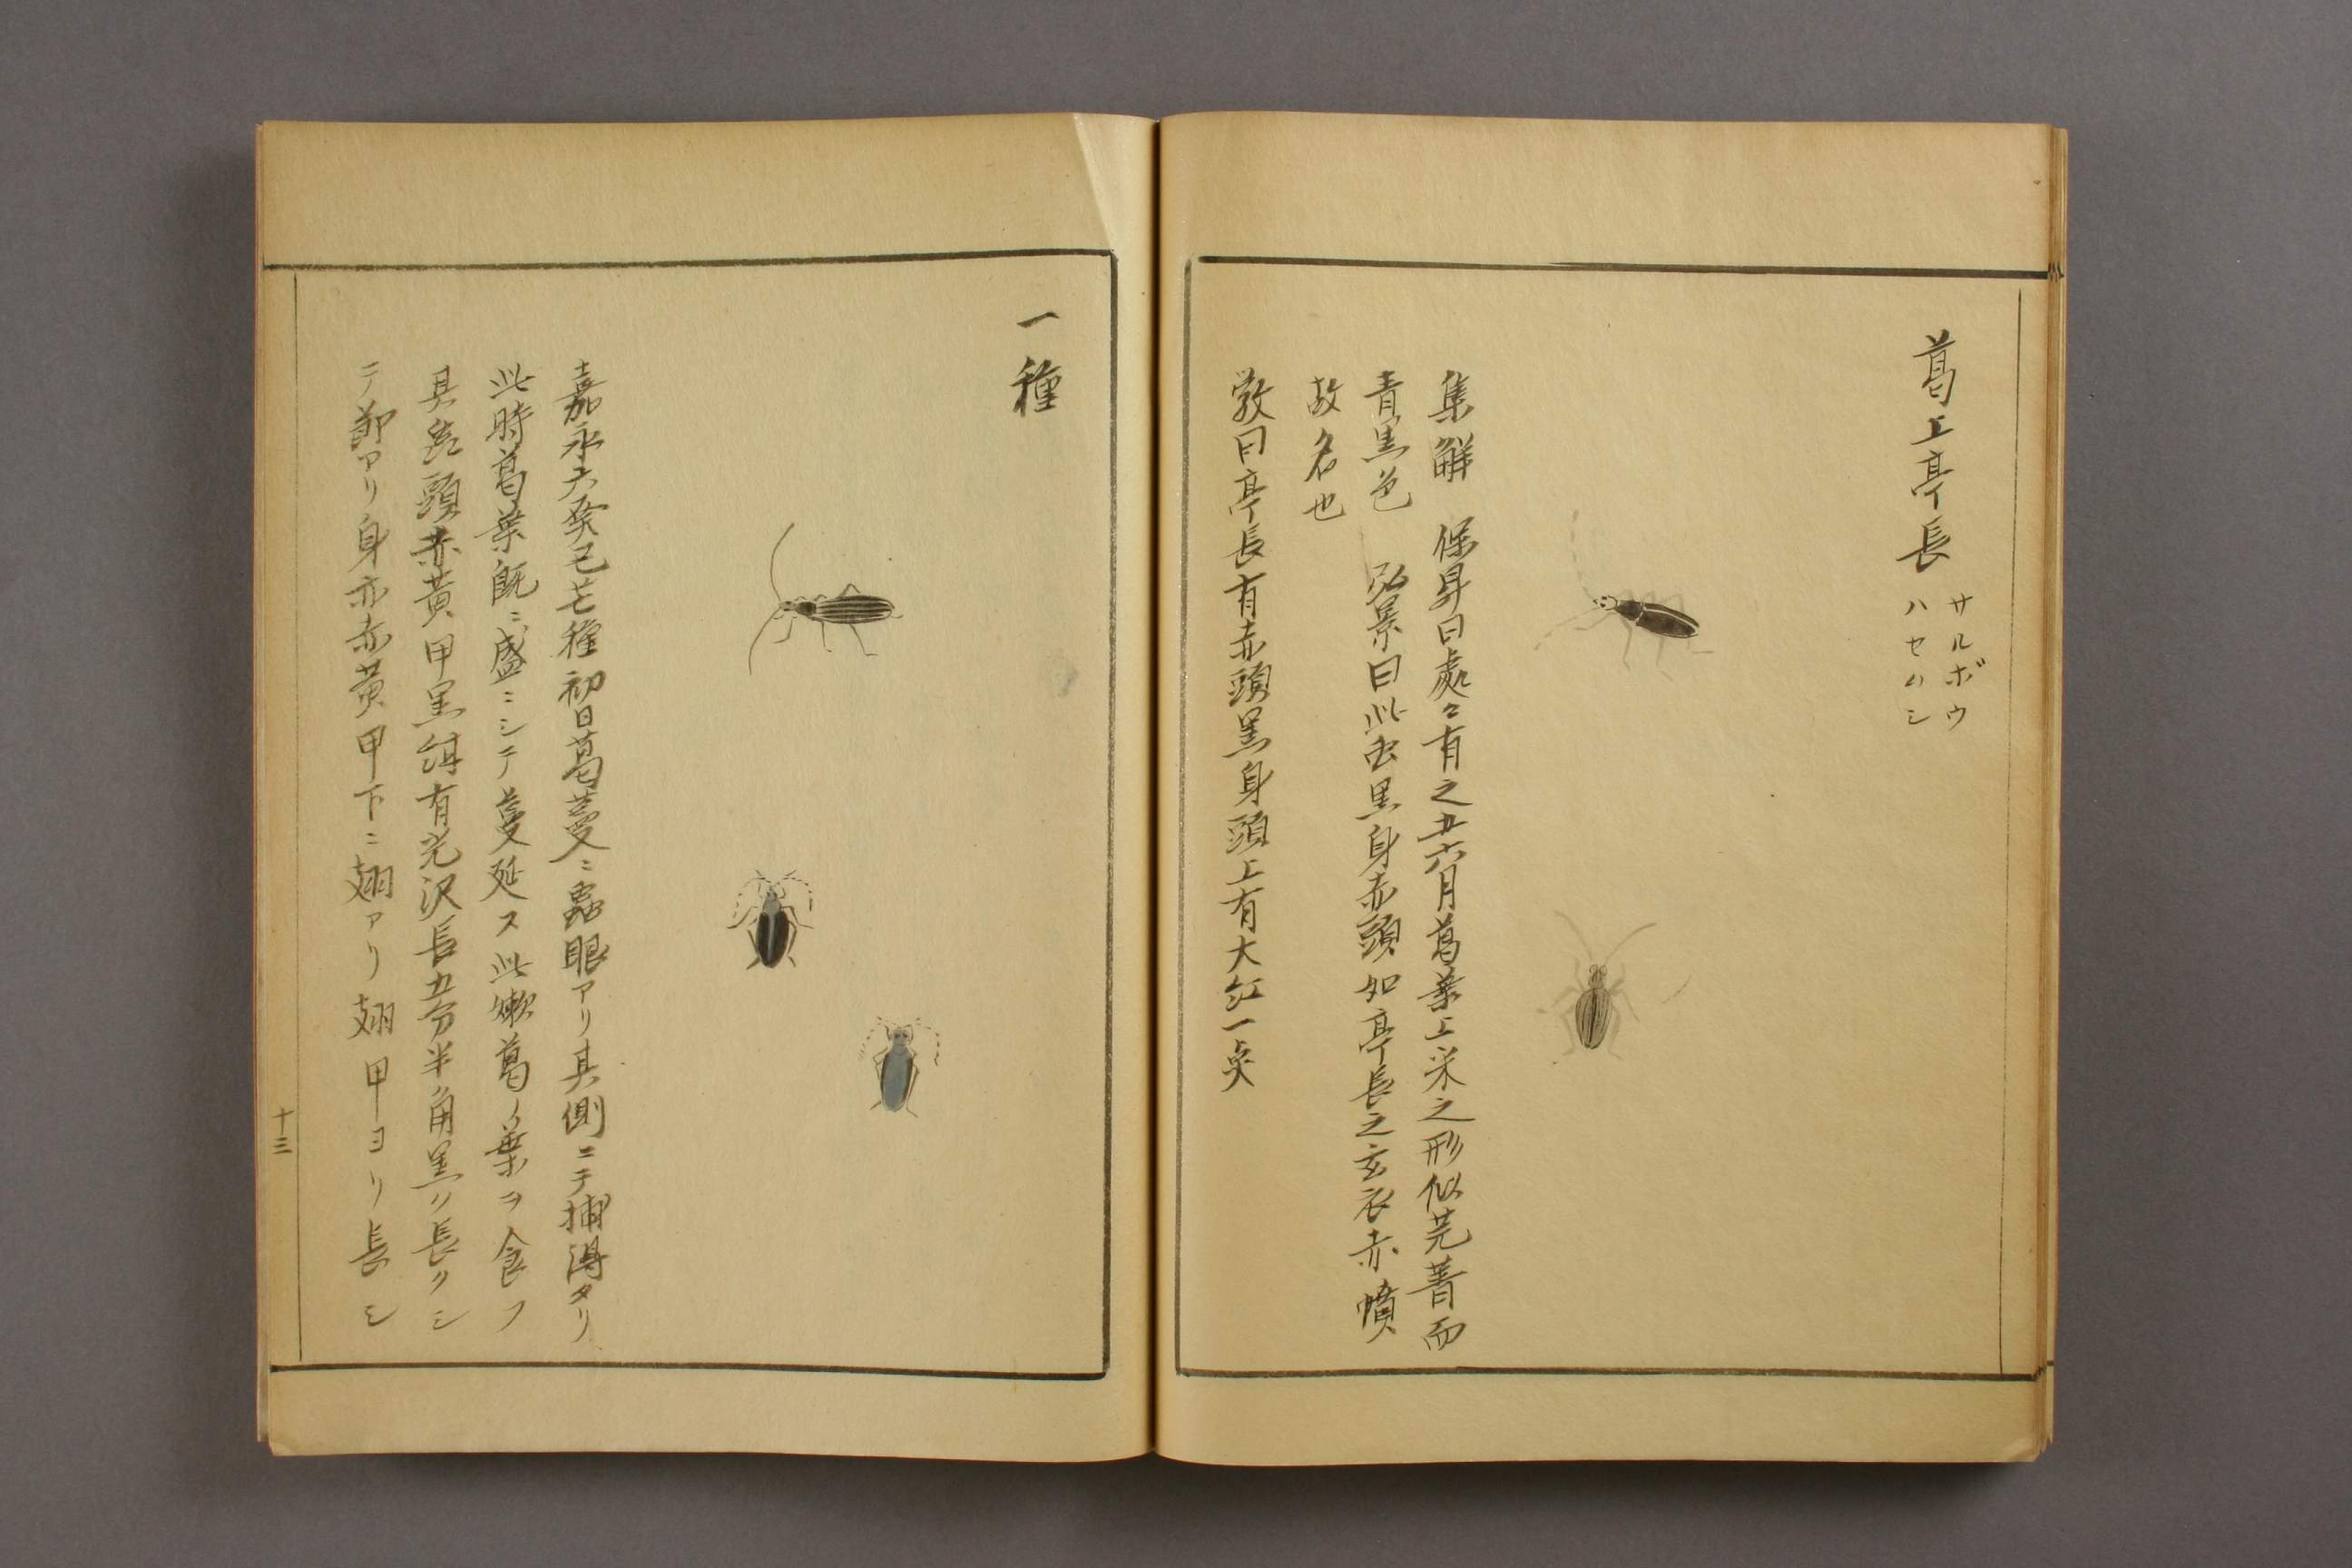 葛上亭長
サルボウ
ハセムシ
集解 保昇曰處々有之五六月葛葉上采之形似芫菁而
青黒色 弘景曰此虫黒身赤頭如亭長之玄衣赤幘
故名也
斅曰亭長有赤頭黒身頭上有大紅一点
一種
嘉永六癸巳芒種初日葛蔓ニ蟲眼アリ其側ニテ捕得タリ
此時葛葉既ニ盛ニシテ蔓延ス此嫩葛ノ葉ヲ食フ
其頭赤黄甲黒緑有光沢長五分半角黒ク長クシ
テ節アリ身亦赤黄甲下ニ翅アリ翅甲ヨリ長シ
十三